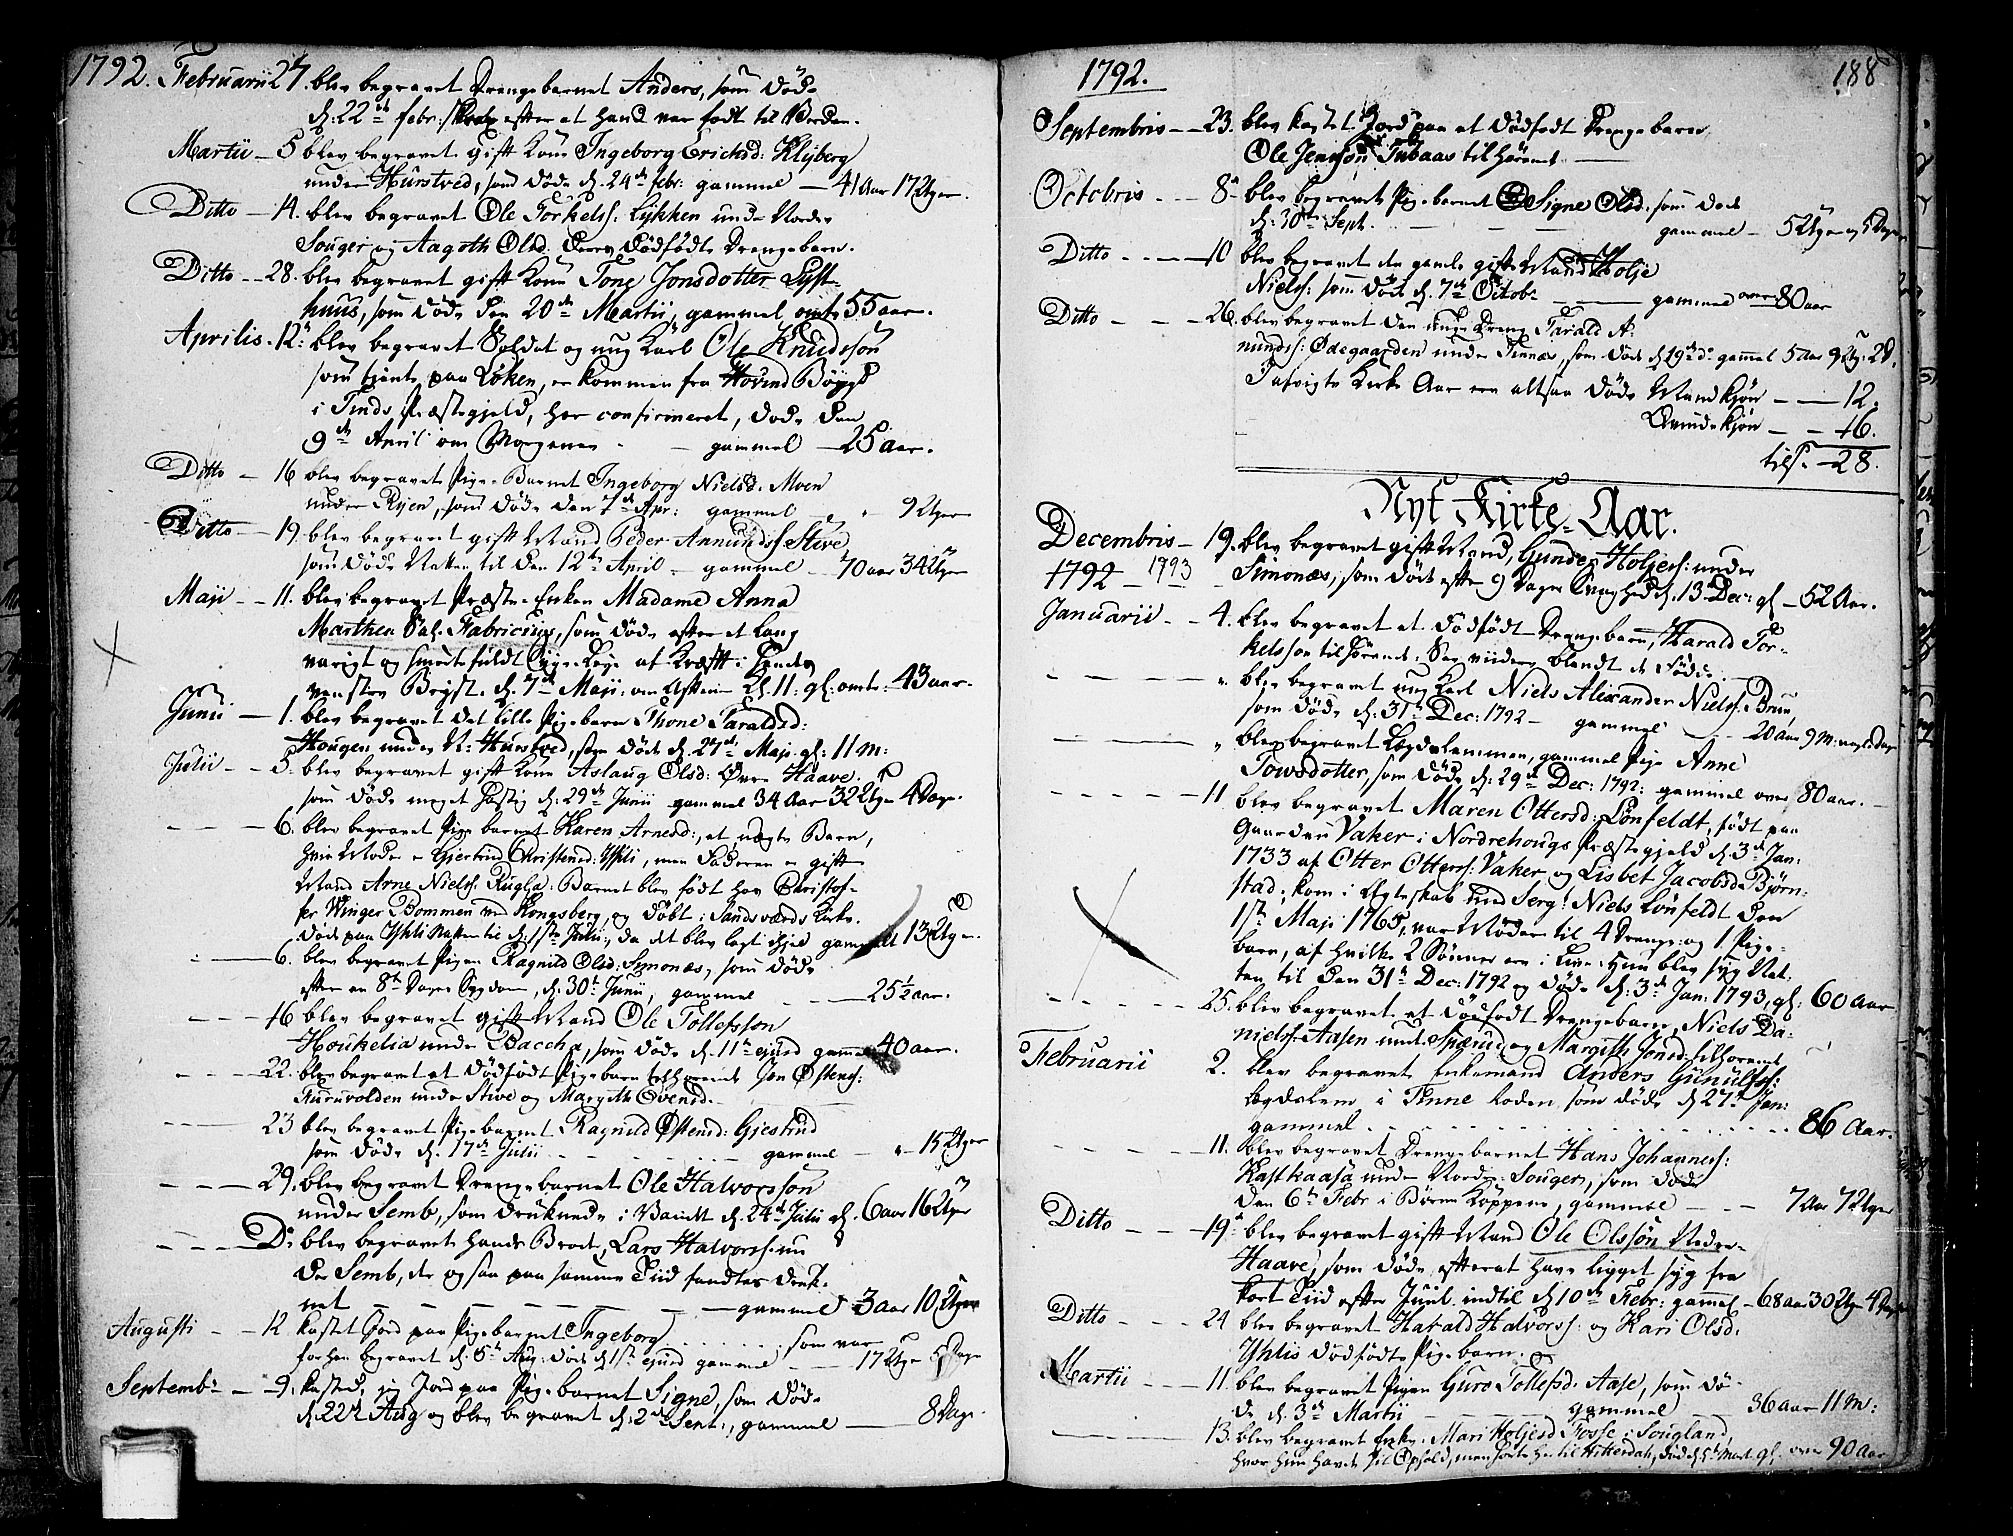 1792. Februarii 27. blev begravet Drengebarnet Anders, som døde
d: 22de febr: efter at hand var født til Verden.
Martii – 5 blev begravet gift Kone Ingeborg Erichsd: Klyberg
under Hurstved, som døde d. 24de febr: gammel – 41 Aar 17 Uger.
Ditto – 14. blev begravet Ole Torkelss: Lykken under Nordre
Souger og Aagoth Olsd. deres dødfødte Drengebarn.
Ditto – 28. blev begravet gift Kone Tone Jonsdotter Lyst-
huus, som døde den 20de Martii, gammel omtr 55 aar.
Aprilis. 12te blev begravet Soldat og ung Karl Ole Knudsson
som tjente paa Løken, er kommen fra Hovind Bøygd
i Tinds Præstegjeld, her confirmeret, døde den
9de April om Morgenen – gammel – 25 aar.
Ditto – 16 blev begravet Pige-Barnet Ingeborg Nielsd. Moen
under Ryen, som døde den 7de Apr: gammel – 9 Uger
Ditto – 19. blev begravet gift Mand Peder Anmundss Stive
som døde Natten til den 12te April – gammel – 70 aar 34 Uger
Maji – 11. blev begravet Præste-Enken Madame Anna
Marthea Sal. Fabricius, som døde efter et lang
varigt og smertefuldt Syge-Leye af Kræft i hendes
venstre Bryst. d. 7de Maji. om Aftenen Kl. 11: gl: omtr: 43 aar.
Junii – 1. blev begravet det lille Pigebarn Thone Taraldsd:
Hougen under N: Hurstved, som døde d. 27de Maji. gl: 11 m:
Julii – 5. blev begravet gift Kone Aslaug Olsd: Øvre Haave.
som døde meget hastig d: 29de Junii gammel 34 Aar 32 Uger 4 Dage.
– – – 6. blev begravet Pigebarnet Karen Arnesd:, et uægte Barn,
hvis Moder er Gjertrud Christensd: Yhli, men Faderen er gift
Mand Arne Nielss. Ruglja. Barnet blev født hos Christof-
fer Winger Bommen ved Kongsberg, og døbt i Sandsværds Kirke.
døde paa Yhli Natten til d. 1ste Julii, da det blev lagt ihjel gammelt 13 Uger.
– – – 6. blev begravet Pigen Ragnild Olsd: Simonæs, som døde
efter en 8te Dages Sygdom, d. 30te Junii, gammel – 25½ aar.
– – – 16 blev begravet gift Mand Ole Tollefsson
Houkelia under Baccha, som døde d. 11te ejusd gammel 40 aar.
– – – 22. blev begravet et dødfødt Pigebarn tilhørende Jon Østenss:
Furuvolden under Stive og Margith Evensd.
– – – 23 blev begravet Pigebarnet Ragnild Østensd: Gjestrud
som døde d. 17de Julii – gammel – 15 Uger
– – – 29. blev begravet Drengebarnet Ole Halvorsson
under Semb, som druknede i Vandet d. 24de Julii gl. 6 aar 16 Uger
– – – Do. blev begravet hands Broder, Lars Halvorss: un
der Semb, der og saa paa samme Tiid fandtes druk-
net – – – gammel 3 aar 10 Uger
Augusti – 12 kastet Jord paa Pigebarnet Ingeborg som var
forhen begravet d. 5te Aug: døde d 1ste ejusd gammel – 17 Uger 5 Dage
Septembr – 9. kasted jeg Jord paa Pigebarnet Signe, som døde
d: 22de Aug og blev begravet d: 2de Sept:, gammel – 8 Dage.
1792. 188
Septembris – 23. blev kastet Jord paa et dødfødt Drengebarn
Ole Jensson Tubaas tilhørende –
Octobris – 8de blev begravet Pigebarnet Signe Olsd. som døde
d: 30te Sept. – gammel – 5 Uger og 5 Dage
Ditto – 10 blev begravet den gamle gifte Mand Holje
Nielss: som døde d. 7de Octob – gammel over 80 aar
Ditto – 26. blev begravet den unge Dreng Tarald A-
mundss: Ødegaarden under Tinnæs, som døde d 19de do. gammel 5 Aar 9 Uger 2 D.
I afvigte Kirke Aar ere altsaa døde Mandkjøn – 12.
Qvindekjøn – 16.
tils. – 28.
Nyt Kirke-Aar.
Decembris – 19. blev begravet gift Mand, Gunder Holjess: under
1792 – 1793 Simonæs, som døde efter 9 Dages Svaghed d. 13de Dec: gl – 52 Aar.
Januarii – 4. blev begravet et dødfødt Drengebarn, Harald Tor-
kelsson tilhørende. See videre blandt de Fødde.
– – – " blev begravet ung Karl Niels Alexander Nielss: Brun,
som døde d. 31te Dec: 1792 – gammel – 20 aar 9 M:
– – – " blev begravet Legdslemmen, gammel Pige Anne
Towsdotter, som døde d. 29de Dec: 1792: gammel over 80 aar.
– – – 11 blev begravet Maren Ottersd: Lønfeldt, født paa
Gaarden Vaker i Nordrehougs Præstegjeld d. 3de Jan.
1733 af Otter Otterss: Vaker og Lisbet Jacobsd. Bjørn-
stad; kom i Ægteskab med Serg! Niels Lønfeldt den
1ste Maji 1765, var Moder til 4 Drenge og 1 Pige-
barn, af hvilke 2 Sønner ere i Live. Hun blev syg Nat-
ten til den 31te Dec: 1792 og døde d: 3de Jan: 1793, gl: 60 Aar
– – – 25. blev begravet et dødfødt Drengebarn, Niels Da-
nielss: Aasen und. Spærud og Margith Jonsd: tilhørende
Februarii 2. blev begravet Enkemand Anders Gunulfss:
Legdslem i Tinne Roden, som døde d 27de Jan:
gammel – – – 86 Aar.
– – – 11. blev begravet Drengebarnet Hans Johanness:
Kastkaasa under Nordre Souger, som døde
den 6te Febr i Børne Kopperne, gammel – 7 Aar 7 Uger
Ditto – 19de blev begravet gift Mand Ole Olssøn Nedre-
Haave, som døde, efterat have ligget syg fra
kort Tiid efter Juul. indtil d 10de Febr: gammel – 68 aar 30 Uger 4 Dage
Ditto – 24 blev begravet Harald Halvorss: og Kari Olsd:
Yhlis dødfødte Pigebarn. –
Martii – 11 blev begravet Pigen Guro Tollefsd. Aase, som dø-
de d. 3de Martii – gammel – 36 aar 11 M:
– – – 13. blev begravet Enke, Mari Holjesd Fosse i Sougland,
hvor hun havde sit Ophold, men førte her til Hitterdal, død d. 5te Mart. gl. over 90 Aar